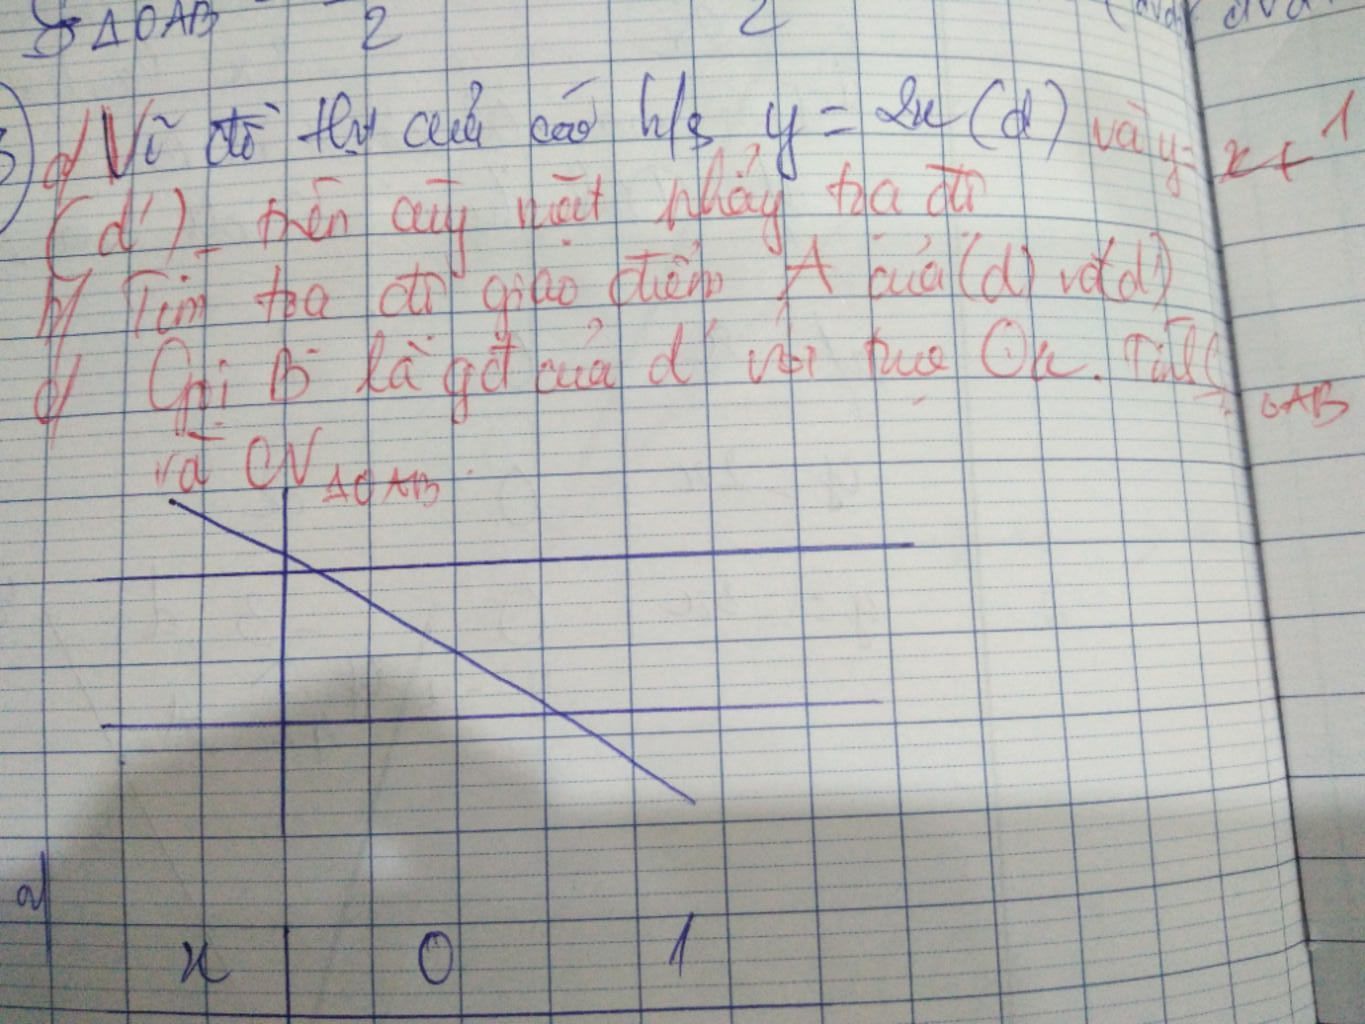 S ΔOAB 2 2
a/ Vẽ đồ thị của các h/s y = 2x (d) và y = x + 1
(d') trên cùng một mặt phẳng tọa độ
b/ Tìm tọa độ giao điểm A của (d) và (d')
c/ Gọi B là gđ của d' với trục Ox. Tính
ΔOAB
và CV ΔOAB
a/
x 0 1